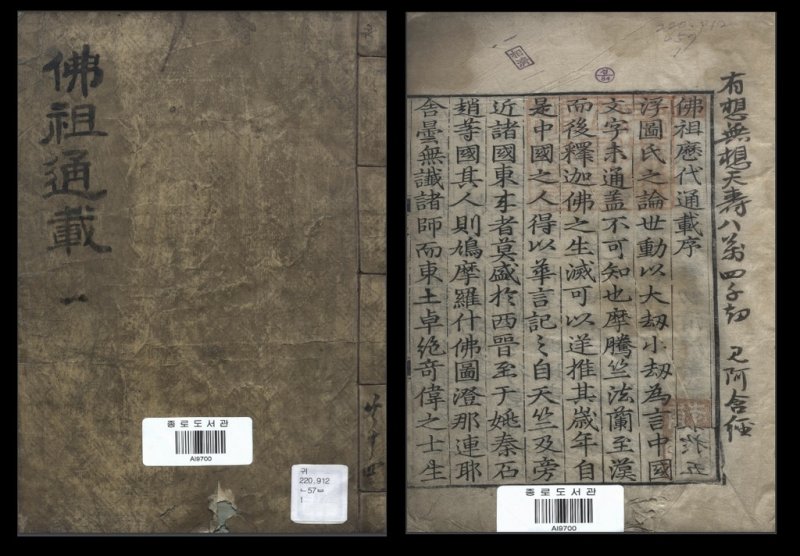 佛祖通載
一
종로도서관
AI9700
귀
220.912
ㄴ57ㅂ
1
有想無想天壽八萬四千劫 見阿含經
佛祖歷代通載序
浮圖氏之論世動以大刼小刼為言中國
文字未通盖不可知也摩騰竺法蘭至漢
而後釋迦佛之生滅可以逆推其歲年自
是中國之人得以華言記之自天竺及旁
近諸國東來者莫盛於西晉至于姚秦石
趙等國其人則鳩摩羅什佛圖澄那連耶
舍曇無讖諸師而東土卓絶奇偉之士生
종로도서관
AI9700